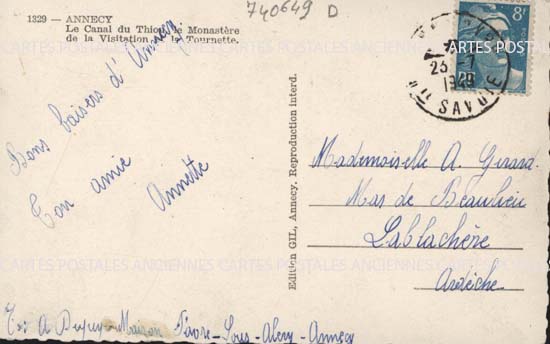 740649 D
1329 — ANNECY
Le Canal du Thiou, le Monastère
de la Visitation et la Tournette.
8F
23 -7
1949
Hte SAVOIE
Bons baisers d'Annecy
Ton amie
Annette
Edition GIL, Annecy. Reproduction interd.
Mademoiselle A. Girard
Mas de Beaulieu
Lablachère
Ardèche
A Dupuy Maison Annecy
ARTES POSTALES
CARTES POSTALES ANCIENNES CARTES POSTALES ANCIENNES CARTES POSTALES